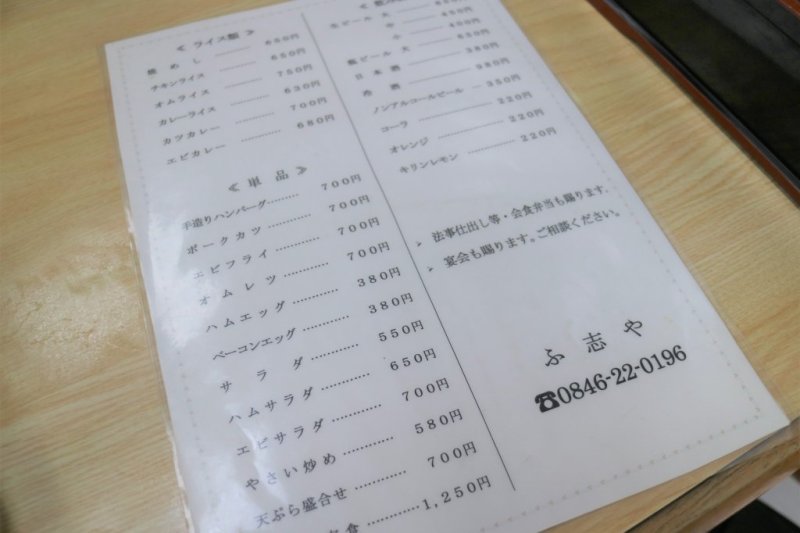 ≪ ライス類 ≫
焼めし …………
チキンライス ………… 650円
オムライス ………… 750円
カレーライス ………… 630円
カツカレー ………… 700円
エビカレー ………… 680円
≪ 単品 ≫
手造りハンバーグ ……… 700円
ポークカツ ………… 700円
エビフライ ………… 700円
オムレツ ………… 700円
ハムエッグ ………… 380円
ベーコンエッグ ………… 380円
サラダ ………… 550円
ハムサラダ ………… 650円
エビサラダ ………… 700円
やさい炒め ………… 580円
天ぷら盛合せ ………… 700円
食 ………… 1,250円
生ビール 大
中 ………… 450円
小 ………… 400円
瓶ビール 大 ………… 630円
日本酒 ………… 380円
冷酒 ………… 980円
ノンアルコールビール … 350円
コーラ ………… 220円
オレンジ ………… 220円
キリンレモン ………… 220円
➢ 法事仕出し等・会食弁当も賜ります。
➢ 宴会も賜ります。ご相談ください。
ふ志や
☎0846-22-0196